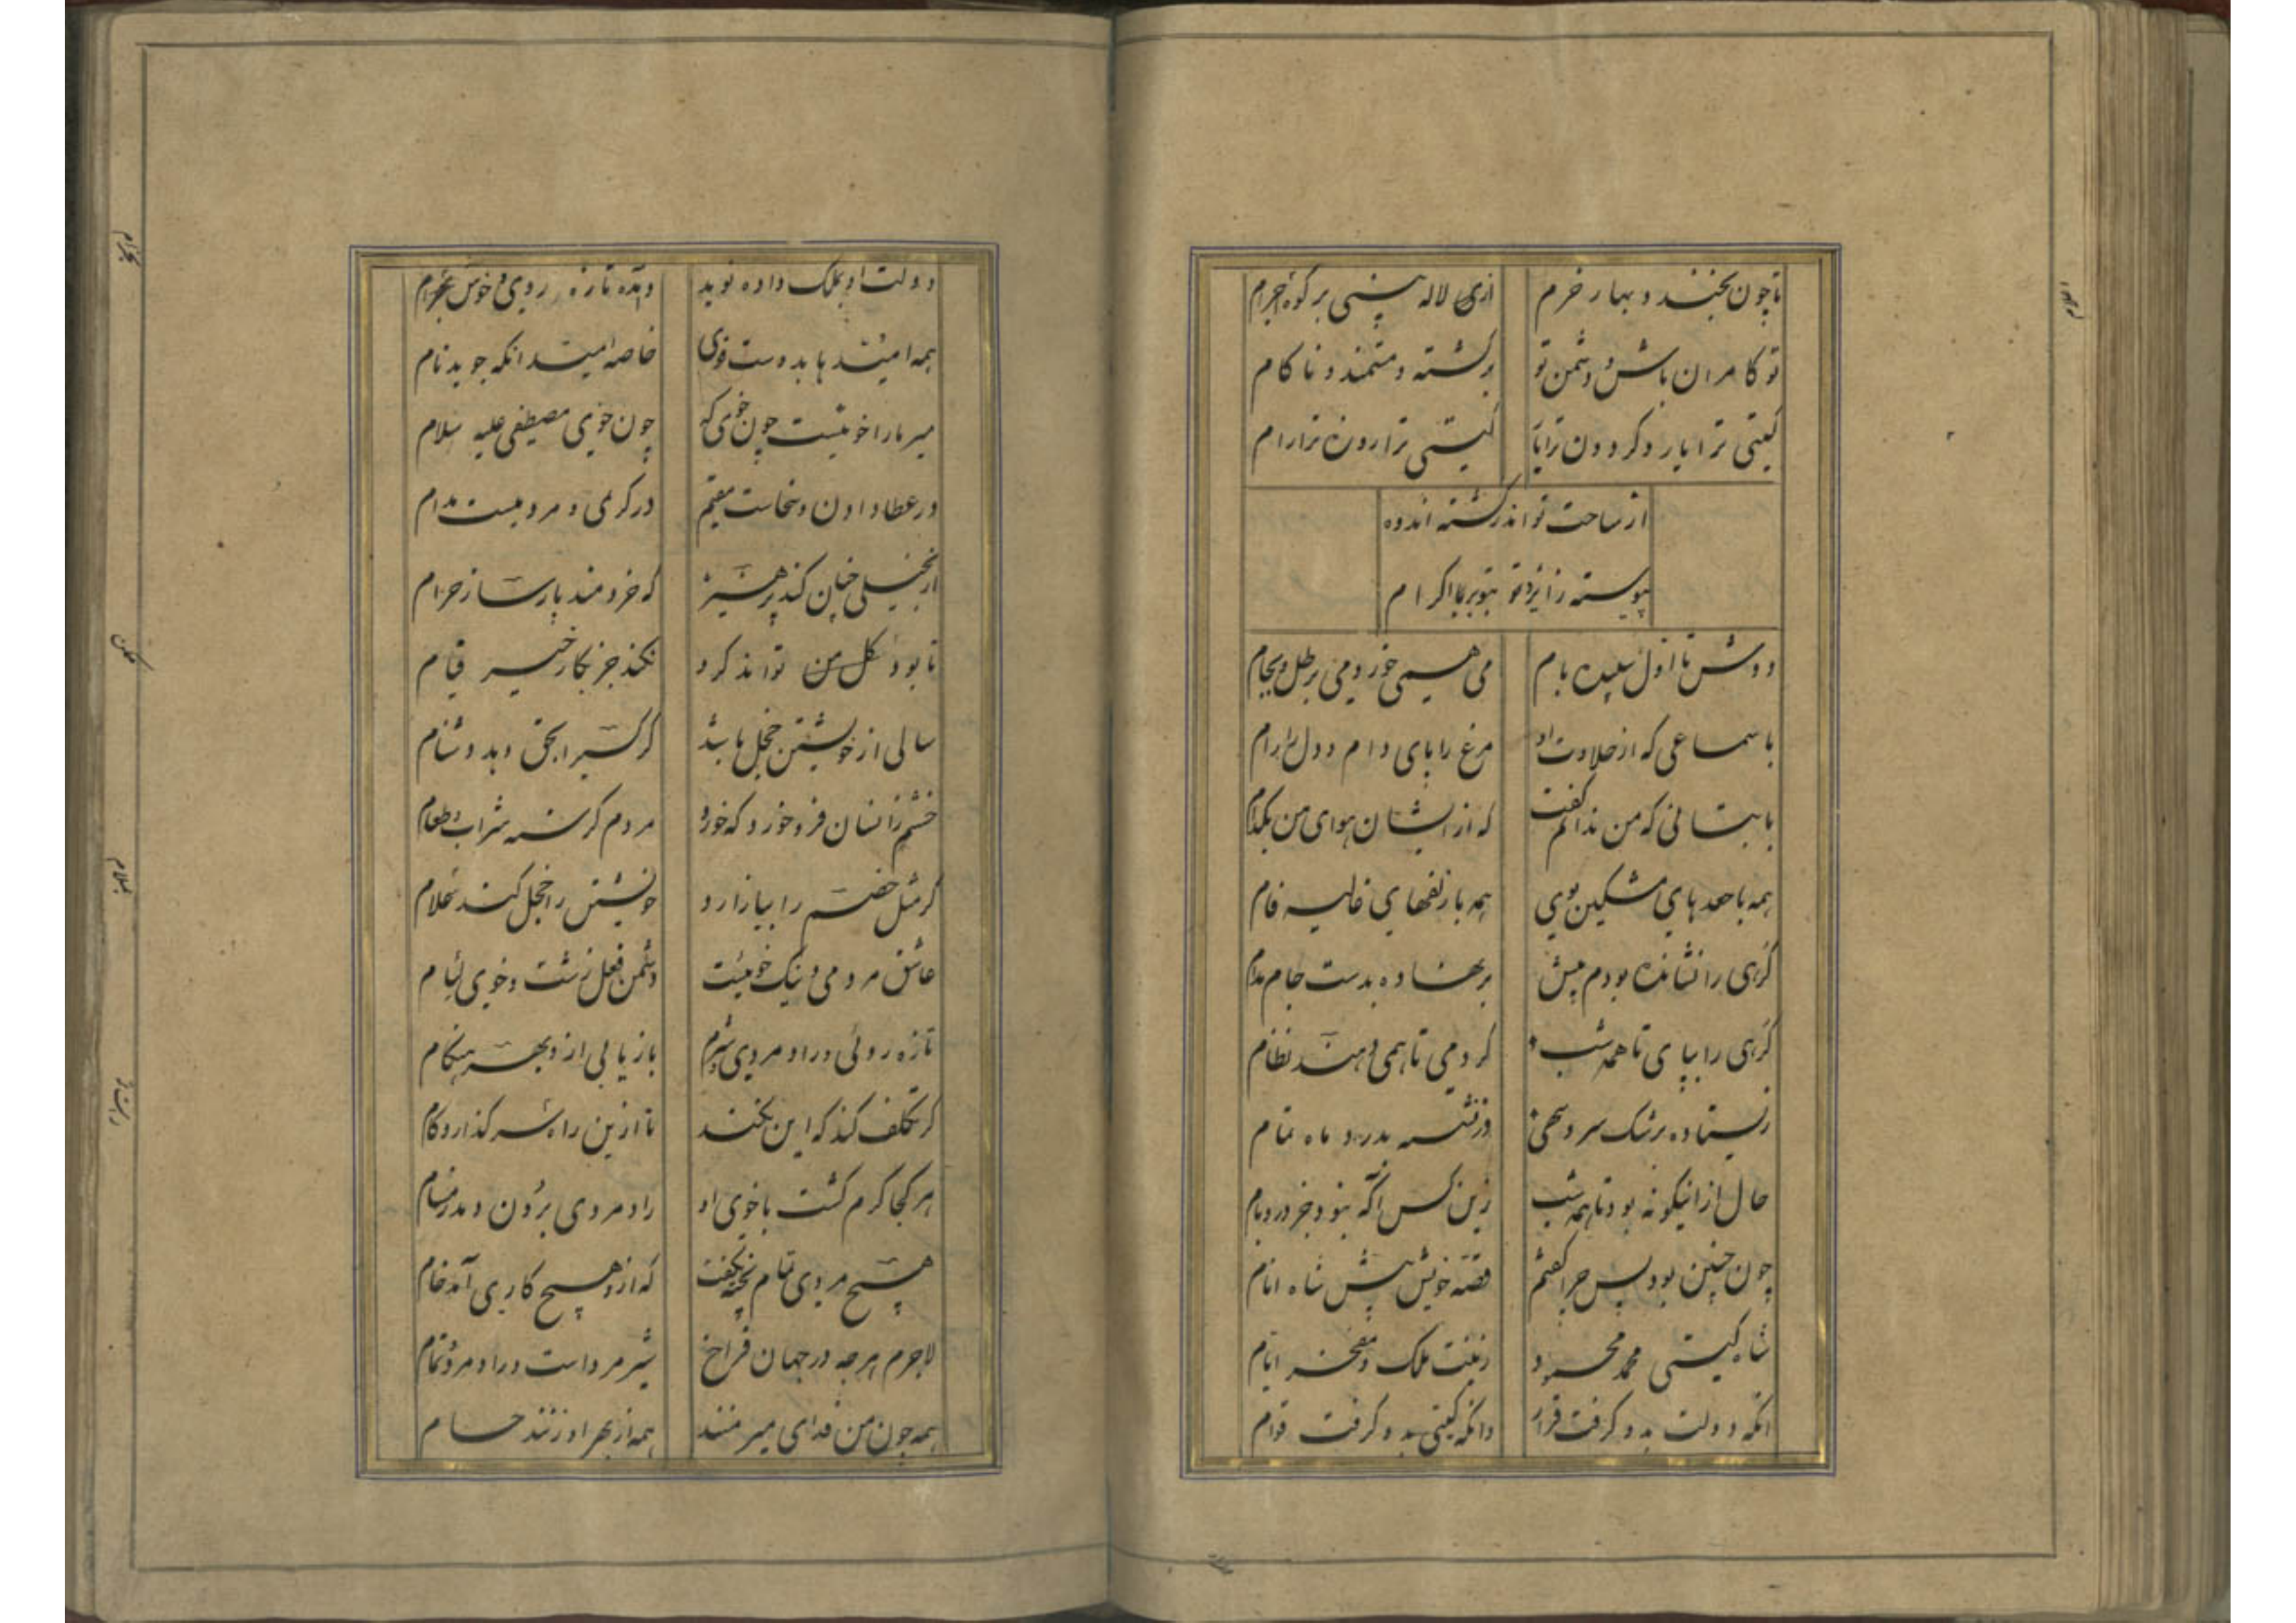 تا چون بخندد بهار خرم
از لاله بینی بر کوه اجرام
تو کامران باش و دشمن تو
برگشته و مستمند و ناکام
گیتی ترا یار و گردون ترا یار
گیتی ترا رون ترا رام
از ساحت تو اندر گشته اندوه
پیوسته زایزد تو بتو بر با اکرام
دوش تا اول سپیده بام
می همی خورد می برطل و بجام
با سماعی که از حلاوت او
مرغ را پای دام و دل را رام
با بتانی که من ندانم گفت
که از ایشان هوای من بکدام
همه با جعدهای مشکین بوی
همه با زلفهای غالیه فام
گرهی را نشانده بودم پیش
برنهاده بدست جام مدام
گرهی را بپای تا همه شب
کردمی تا همی دهند نظام
زیستاده برشک سرو سهی
وز نشسته بدرد ماه تمام
حال ازانیگونه بود تا همه شب
زین کس آگه نبود جز در و بام
چون چنین بود پس چرا گفتم
قصه خویش پیش شاه انام
شاه گیتی محمد محمود
زینت ملک و مفخر ایام
انکه دولت بدو گرفت قرار
وانکه گیتی بدو گرفت قوام
دولت او بملک داده نوید
و آمده تازه روی و خوش بخرام
همه امیدها بدوست قوی
خاصه امید انکه جوید نام
میر ما را خویست چون خوی که
چون خوی مصطفی علیه سلام
در عطا دادن و سخاست مقیم
در کریمی و مردمیست مدام
از بخیلی چنان کند پرهیز
که خردمند پارسا ز حرام
تا بود گل من تواند کرد
نکند جز بکار خیر قیام
سالی از خویشتن خجل باشد
گر کسی را بحق دهد دشنام
خشم زانسان فرو خورد که خورد
مردم گرسنه شراب و طعام
گر بمثل خصم را بیازارد
خویشتن را خجل کند بملام
عاشق مردمی و نیک خوئیست
دشمن فعل زشت و خوی لئام
تازه روئی و رادمردی و شرم
باز یابی از و بهر هنگام
گر تکلف کند که این نکند
تا ازین راه برگذارد گام
هر کجا گرم گشت با خوی او
رادمردی برون دمد ز مسام
هیچ مردی تمام پخته نگفت
که از و هیچ کاری آمد خام
لاجرم هرچه در جهان فراخ
شیر مرد است و رادمرد و تمام
همه چون من فدای میر منند
همه از بهر او زنند حسام